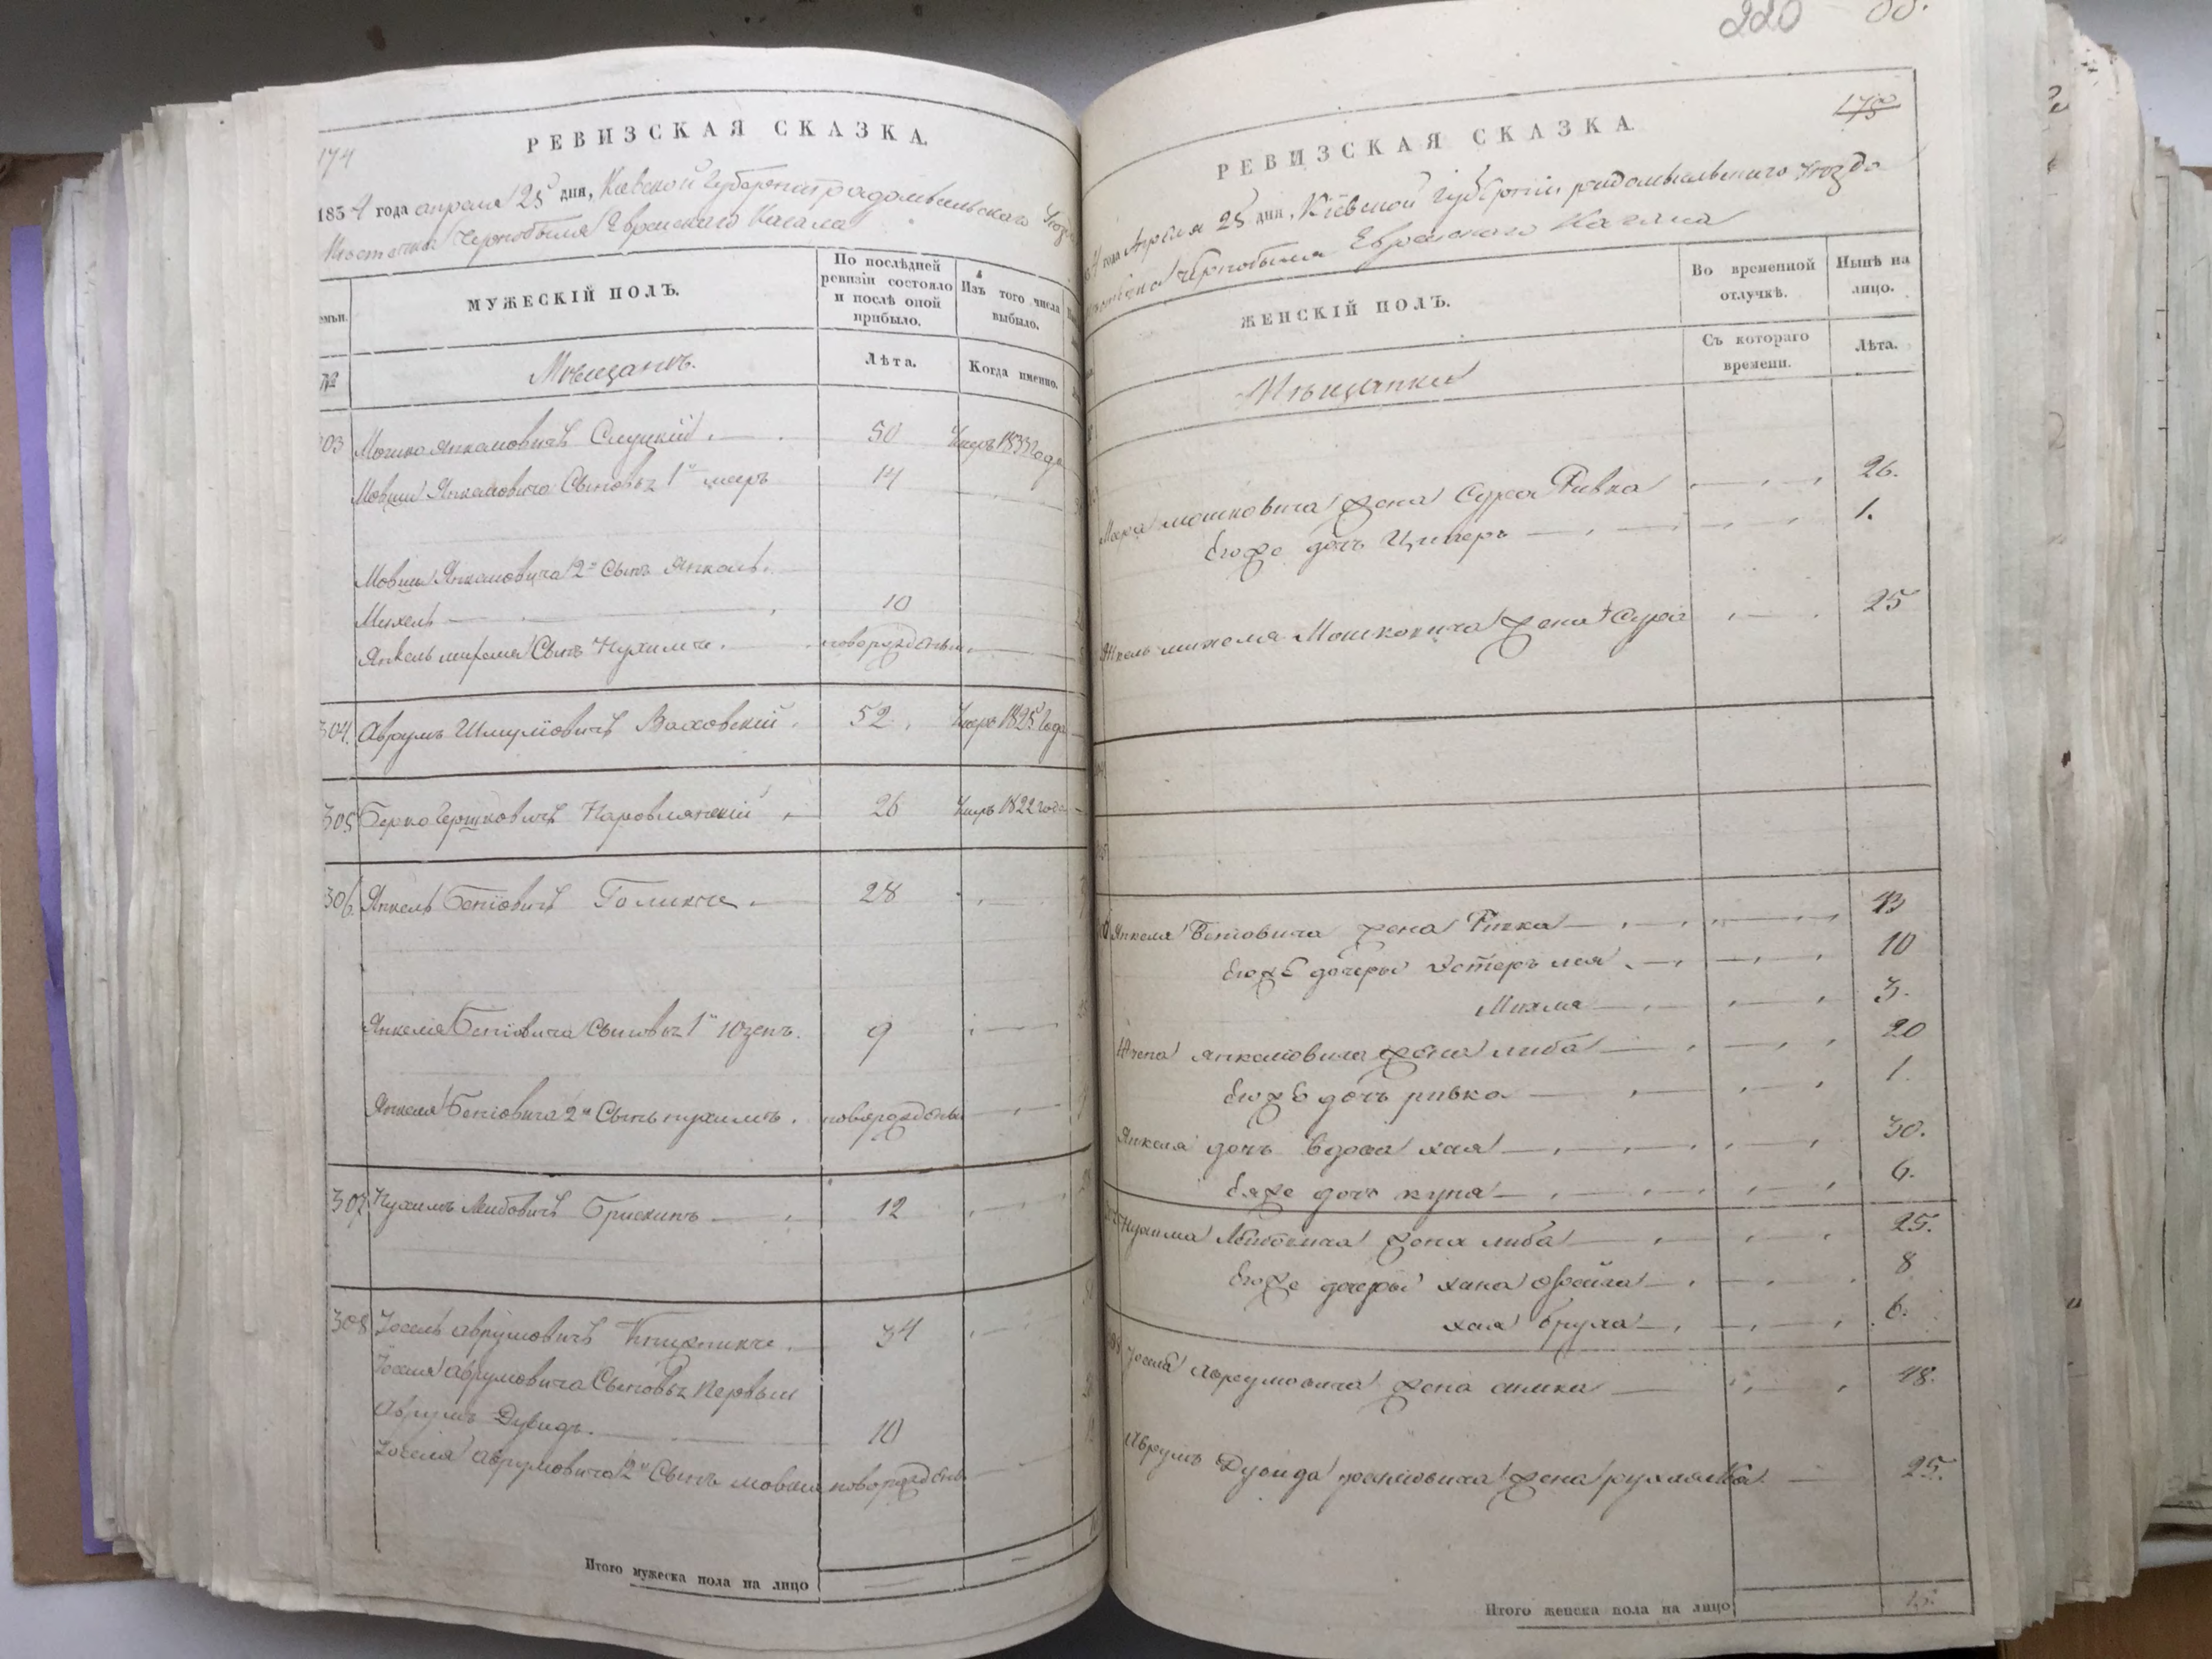 174
РЕВИЗСКАЯ СКАЗКА.
1834 года апреля 25 дня, Киевской Губернии радомысльского
Местечка Чернобыля Еврейского Кагала
МУЖЕСКІЙ ПОЛЪ.
По послѣдней ревизіи состояло и послѣ оной прибыло.
Изъ того числа выбыло.
Мѣщанъ.
Лѣта.
Когда именно.
303 Мошко Янкелевичъ Слуцкій 50 Умеръ 1833 Года
Мовши Янкелевича Сыновья 1й мееръ 14
Мовши Янкелевича 2й Сынъ Янкель
Михель 10
Янкель михеля Сынъ Нухимъ новорожденный
304. Аврумъ Шмулiовичъ Ваховскій 52 Умеръ 1825 Года
305 Берко Гершковичъ Наровлянскій 26 Умеръ 1822 года
306. Янкель Бенiовичъ Голикъ 28
Янкеля Бенiовича Сыновья 1й Юзепъ. 9
Янкеля Бенiовича 2й Сынъ нухимъ. новорожденный
307. Нухимъ Лейбовичъ Брискинъ 12
308 Іосель аврумовичъ Книжникъ 34
Іоселя аврумовича Сыновья Первый
Аврумъ Дувидъ 10
Іоселя аврумовича 2й Сынъ мовша новорожден
Итого мужеска пола на лицо
220
175
РЕВИЗСКАЯ СКАЗКА.
4 года Апреля 25 дня, Кіевской Губерніи радомысльского уезда
Чернобыля Еврейского Кагала
ЖЕНСКІЙ ПОЛЪ.
Во временной отлучкѣ.
Нынѣ на лицо.
Мѣщанки
Съ котораго времени.
Лѣта.
Меера мошковича жена Сура Ривка 26.
Его же дочь Ципера 1.
Янкель михеля Мошковича жена Сура 25
Янкеля Бенiовича жена Ривка 43
Его же дочеры Эстеръ лея 10
Михля 3.
Юзепа янкелiовича жена либа 20
Его же дочь ривка 1.
Янкеля дочь вдова хая 30.
Ея же дочь куна 6.
Нухима Лейбовича жена либа 25.
Его же дочеры хана фрейда 8
хая бруха 6.
Іоселя Аврумовича жена симка 48.
Аврумъ Дувида жена рухля 25.
Итого женска пола на лицо